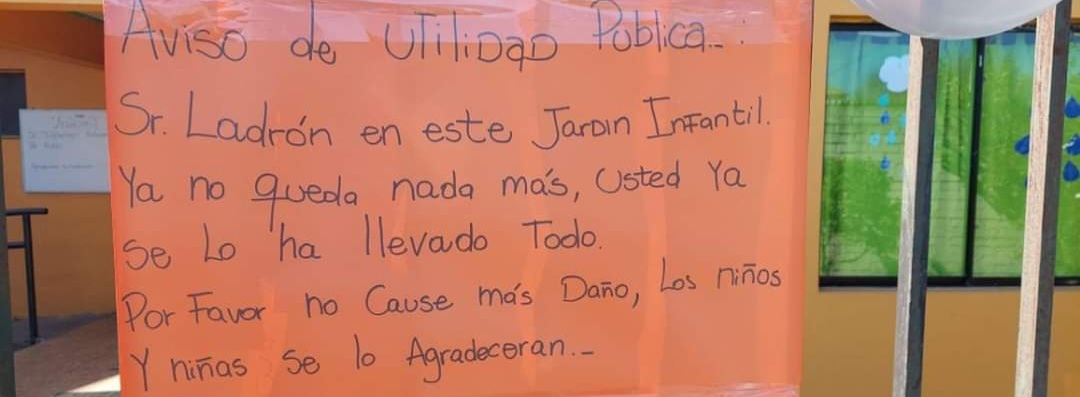 Aviso de UTiliDaD Pública...
Sr. Ladrón en este JarDin InFantil.
Ya no queda nada más, Usted Ya
se Lo ha llevado Todo.
Por Favor no Cause más Daño, Los niños
Y niñas se lo Agradeceran.-